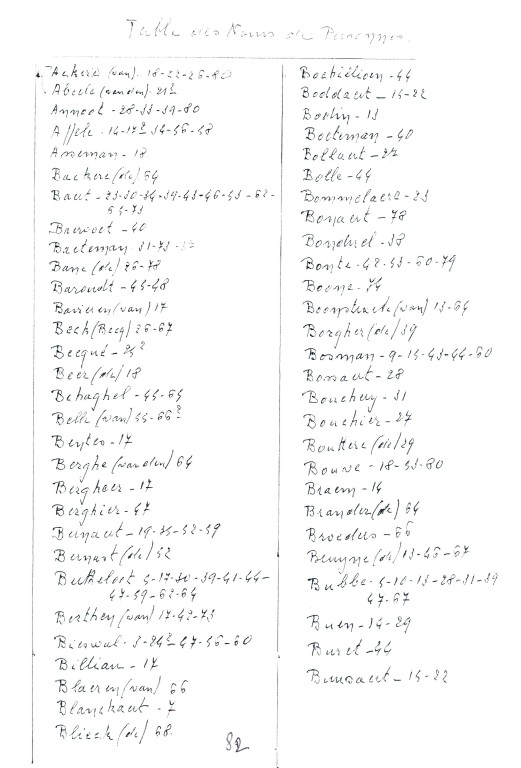 Table des Noms de Personnes.
Ackere (van). 18-22-26-80
Abeele (vanden). 21²
Annoot - 28-33-39-80
Appele. 14-17² 34-56-58
Asseman - 18
Backere (de) 64
Baut - 23-30-34-39-43-46-53-62-
64-73
Baervoet - 40
Baeteman 31-73-
Bane (de) 26-78
Baroudt - 45-48
Bavieren (van) 17
Beck (Becq) 26-67
Becqué - 25²
Beer (de) 18
Behaghel - 45-64
Belle (van) 55-66²
Beyteo - 17
Berghe (vanden) 64
Berghoer - 17
Berghier - 47
Bernaert - 19-35-52-59
Bernart (de) 52
Berteloot 5-17-30-39-41-44-
47-59-62-64
Berthen (van) 17-42-73
Bieswal - 3-24²-47-56-60
Billiau - 17
Blaeren (van) 66
Blanckaert - 7
Blieck (de) 68.
82
Boddaert - 15-22
Bodin - 13
Boeteman - 40
Bollaert - 27
Bolle - 44
Bommelaere - 23
Bonaert - 78
Bonduel - 38
Bonte - 42-53-60-79
Boone - 74
Boonstraete (van) 13-64
Borgher (de) 39
Bosman - 9-15-43-44-60
Bossaert - 28
Bouchery - 31
Bouchier - 27
Bouttere (de) 29
Bouve - 18-53-80
Braem - 14
Brander (de) 64
Broeders - 66
Bruyne (de) 13-46-67
Bubbe. 5-10-13-28-31-39
47-67
Buen - 14-29
Buret - 44
Bussaert - 15-22